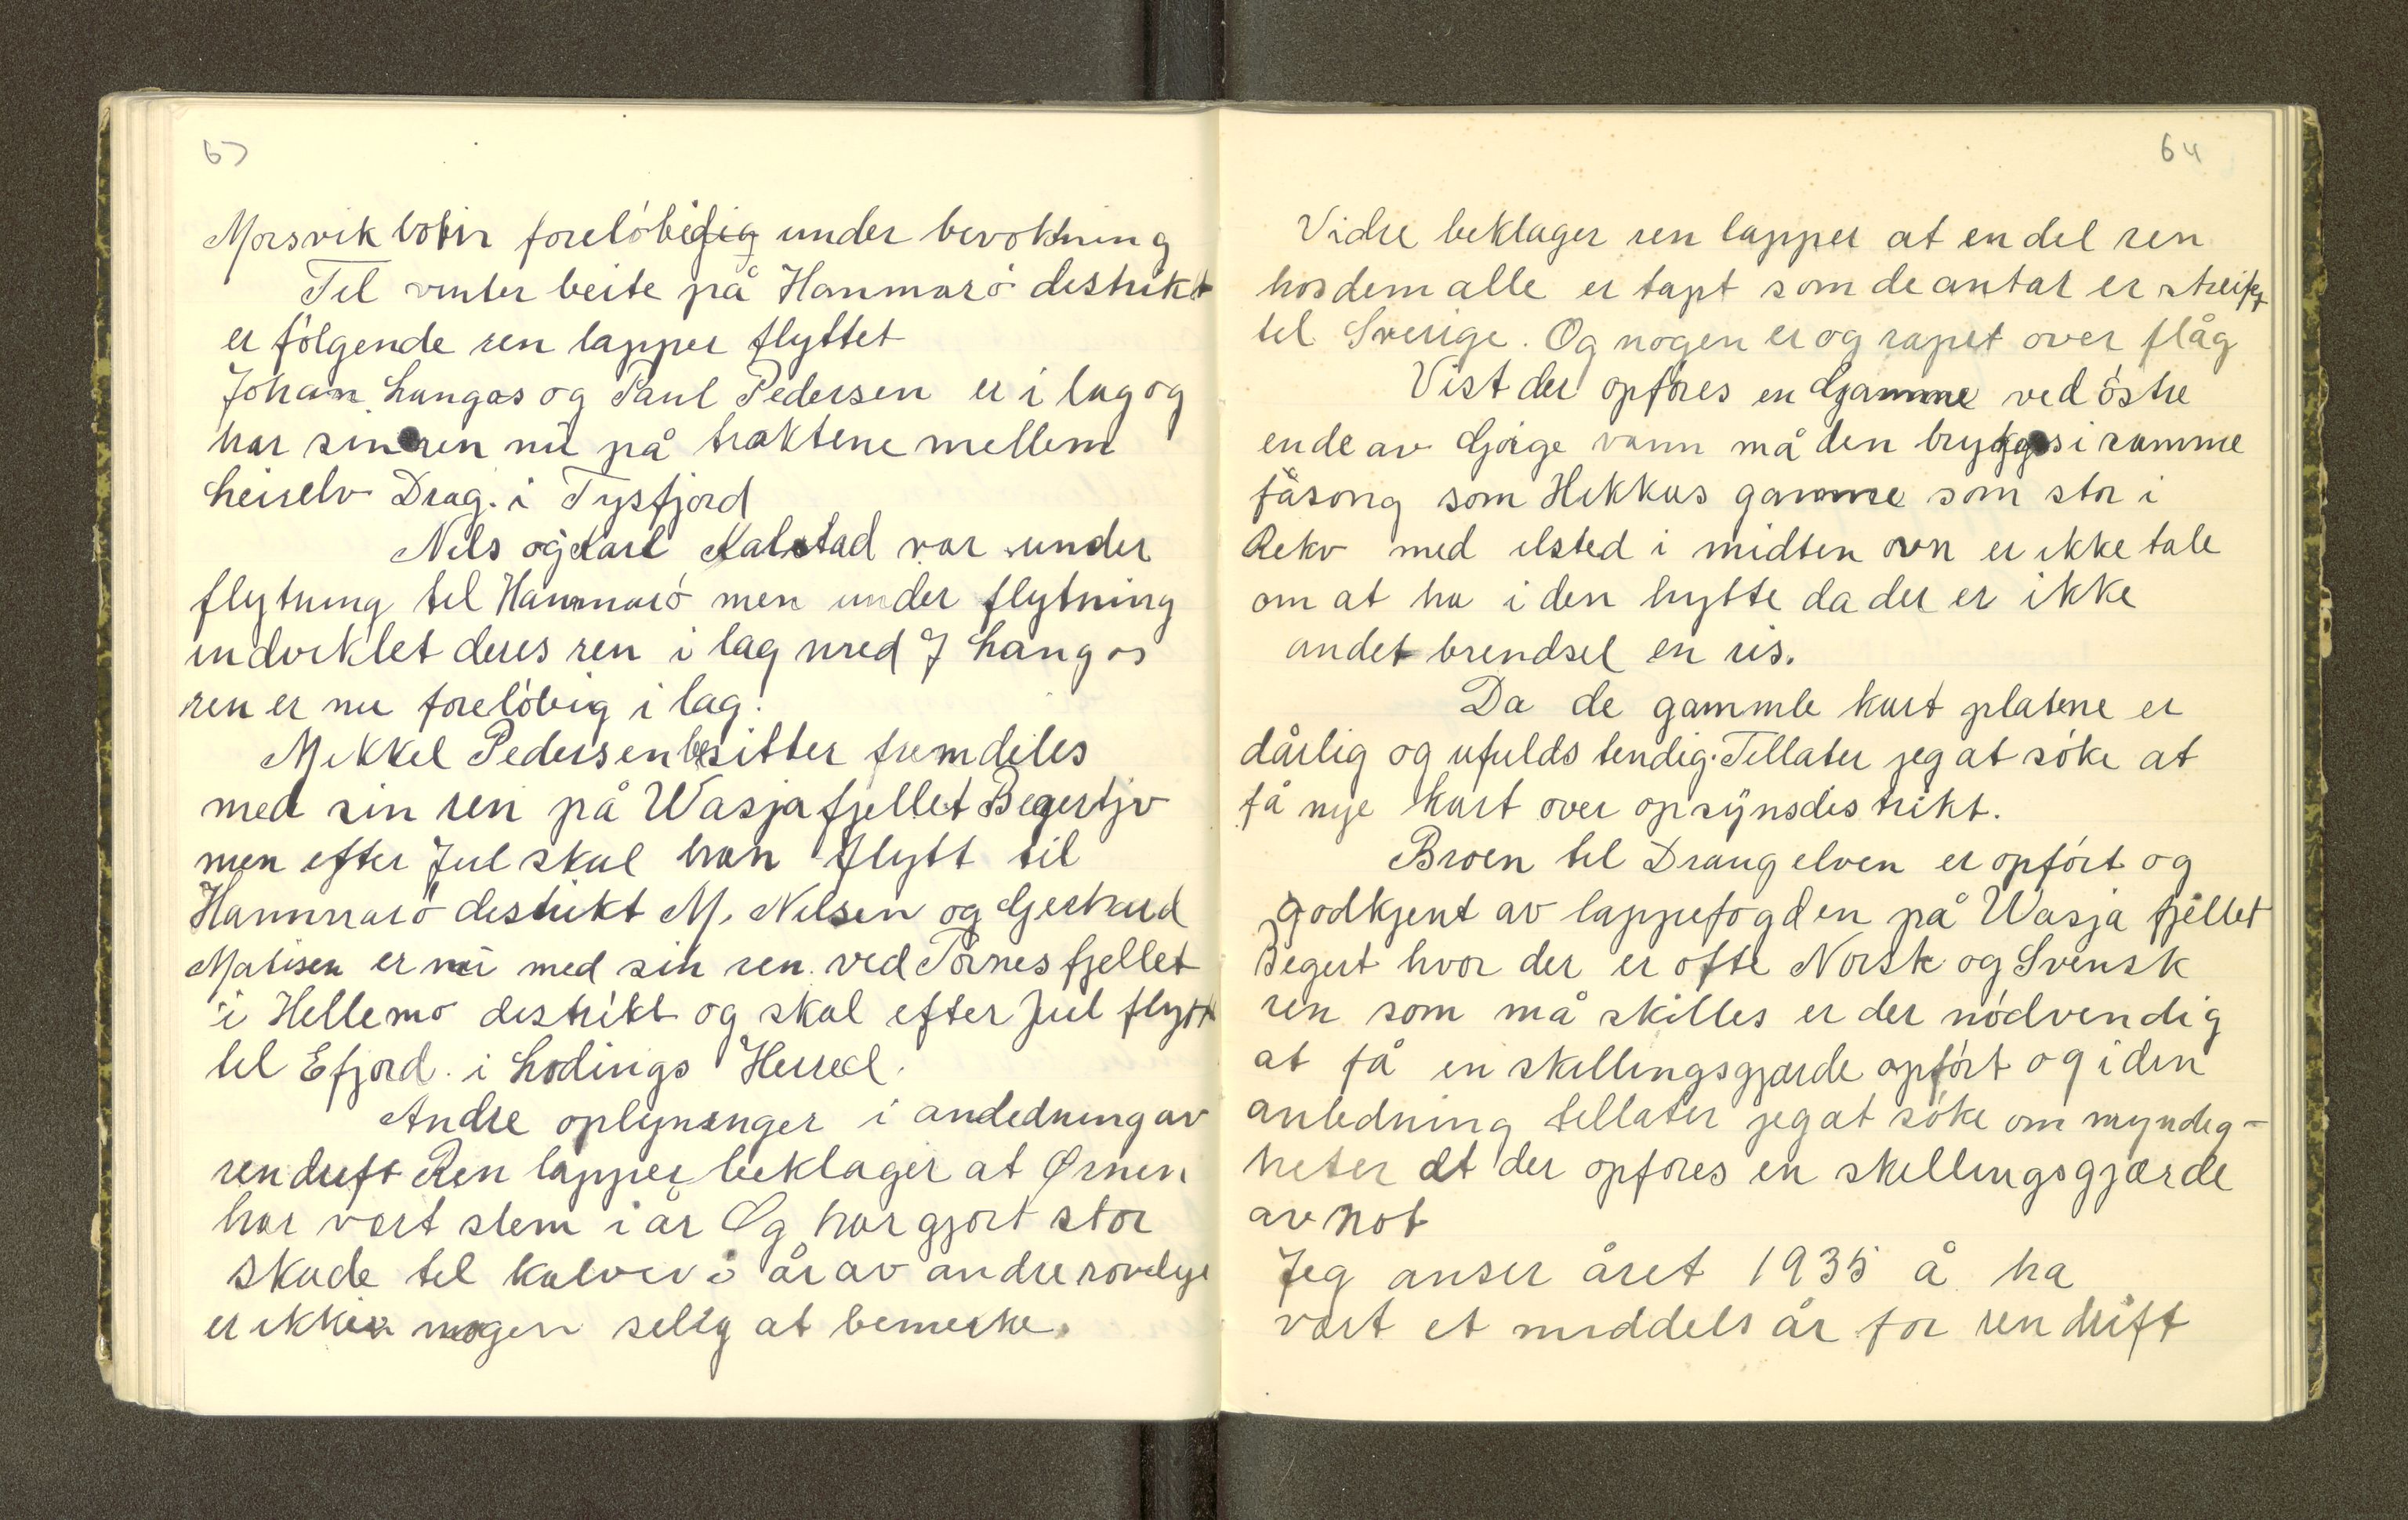 63
Morsvikbotn forelóbigig under bevoktning
Til vinter beite på Hammarö distrikt
er fölgende ren lapper flyttet
Johan Langas og Paul Pedersen er i lag og
har sin ren nu på traktene mellem
Leirelv Drag. i Tysfjord
Nils og Karl Kalstad var under
flytning til Hammarö men under flytning
indviklet deres ren i lag med J Langas
ren er nu forelöbig i lag.
Mikkel Pedersen besitter fremdeles
med sin ren på Wasjafjellet Begertjv
men efter Jul skal han flytt til
Hammarö distrikt M. Nilsen og Gertrud
Matisen er nu med sin ren ved Törnes fjellet
i Hellemo distrikt og skal efter Jul flytt
til Efjord. i Lodings Herred.
Andre oplynsnger i andedning av
rendrift Ren lapper beklager at Ørnen
har vært slem i år Og har gjort stor
skade til kalver i år av andre rovdyr
er ikke nogen selig at bemerke.
64
Vidre beklager ren lapper at en del ren
hos dem alle er tapt som de antar er streift
til Sverige. Og nogen er og rapet over flåg
Vist der opföres en Gamme ved östre
ende av Gjörge vann må den brygges i samme
fåsong som Hikkus gamme som stor i
Rekv med ilsted i midten ovn er ikke tale
om at ha i den hytte da der er ikke
andet brendsel en ris.
Da de gammle kart platene er
dårlig og ufulds tendig. Tillater jeg at söke at
få nye kart over opsynsdistrikt.
Broen til Draugelven er opfört og
godkjent av lappefogden på Wasja fjellet
Begert hvor der er ofte Norsk og Svensk
ren som må skilles er der nödvendig
at få en skillingsgjærde opfört og i den
anledning tillater jeg at söke om myndig-
heter at der opföres en skillingsgjærde
av not
Jeg anser året 1935 å ha
vært et middels år for ren drift